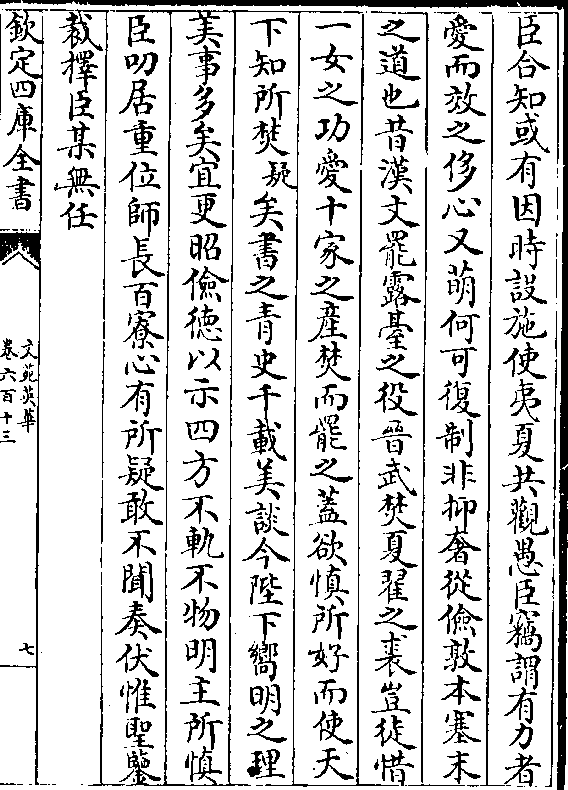 臣合知或有因時設施使夷夏共觀愚臣竊謂有力者
愛而效之侈心又萌何可復制非抑奢從儉敦本塞末
之道也昔漢文罷露臺之役晉武焚夏翟之裘豈徒惜
一女之功愛十家之產焚而罷之蓋欲慎所好而使天
下知所焚疑矣書之青史千載美談今陛下嚮明之理
美事多矣宜更昭儉德以示四方不軌不物明主所慎
臣叨居重位師長百寮心有所疑敢不聞奏伏惟聖鑒
裁擇臣某無任
欽定四庫全書
文苑英華
卷六百十三
七